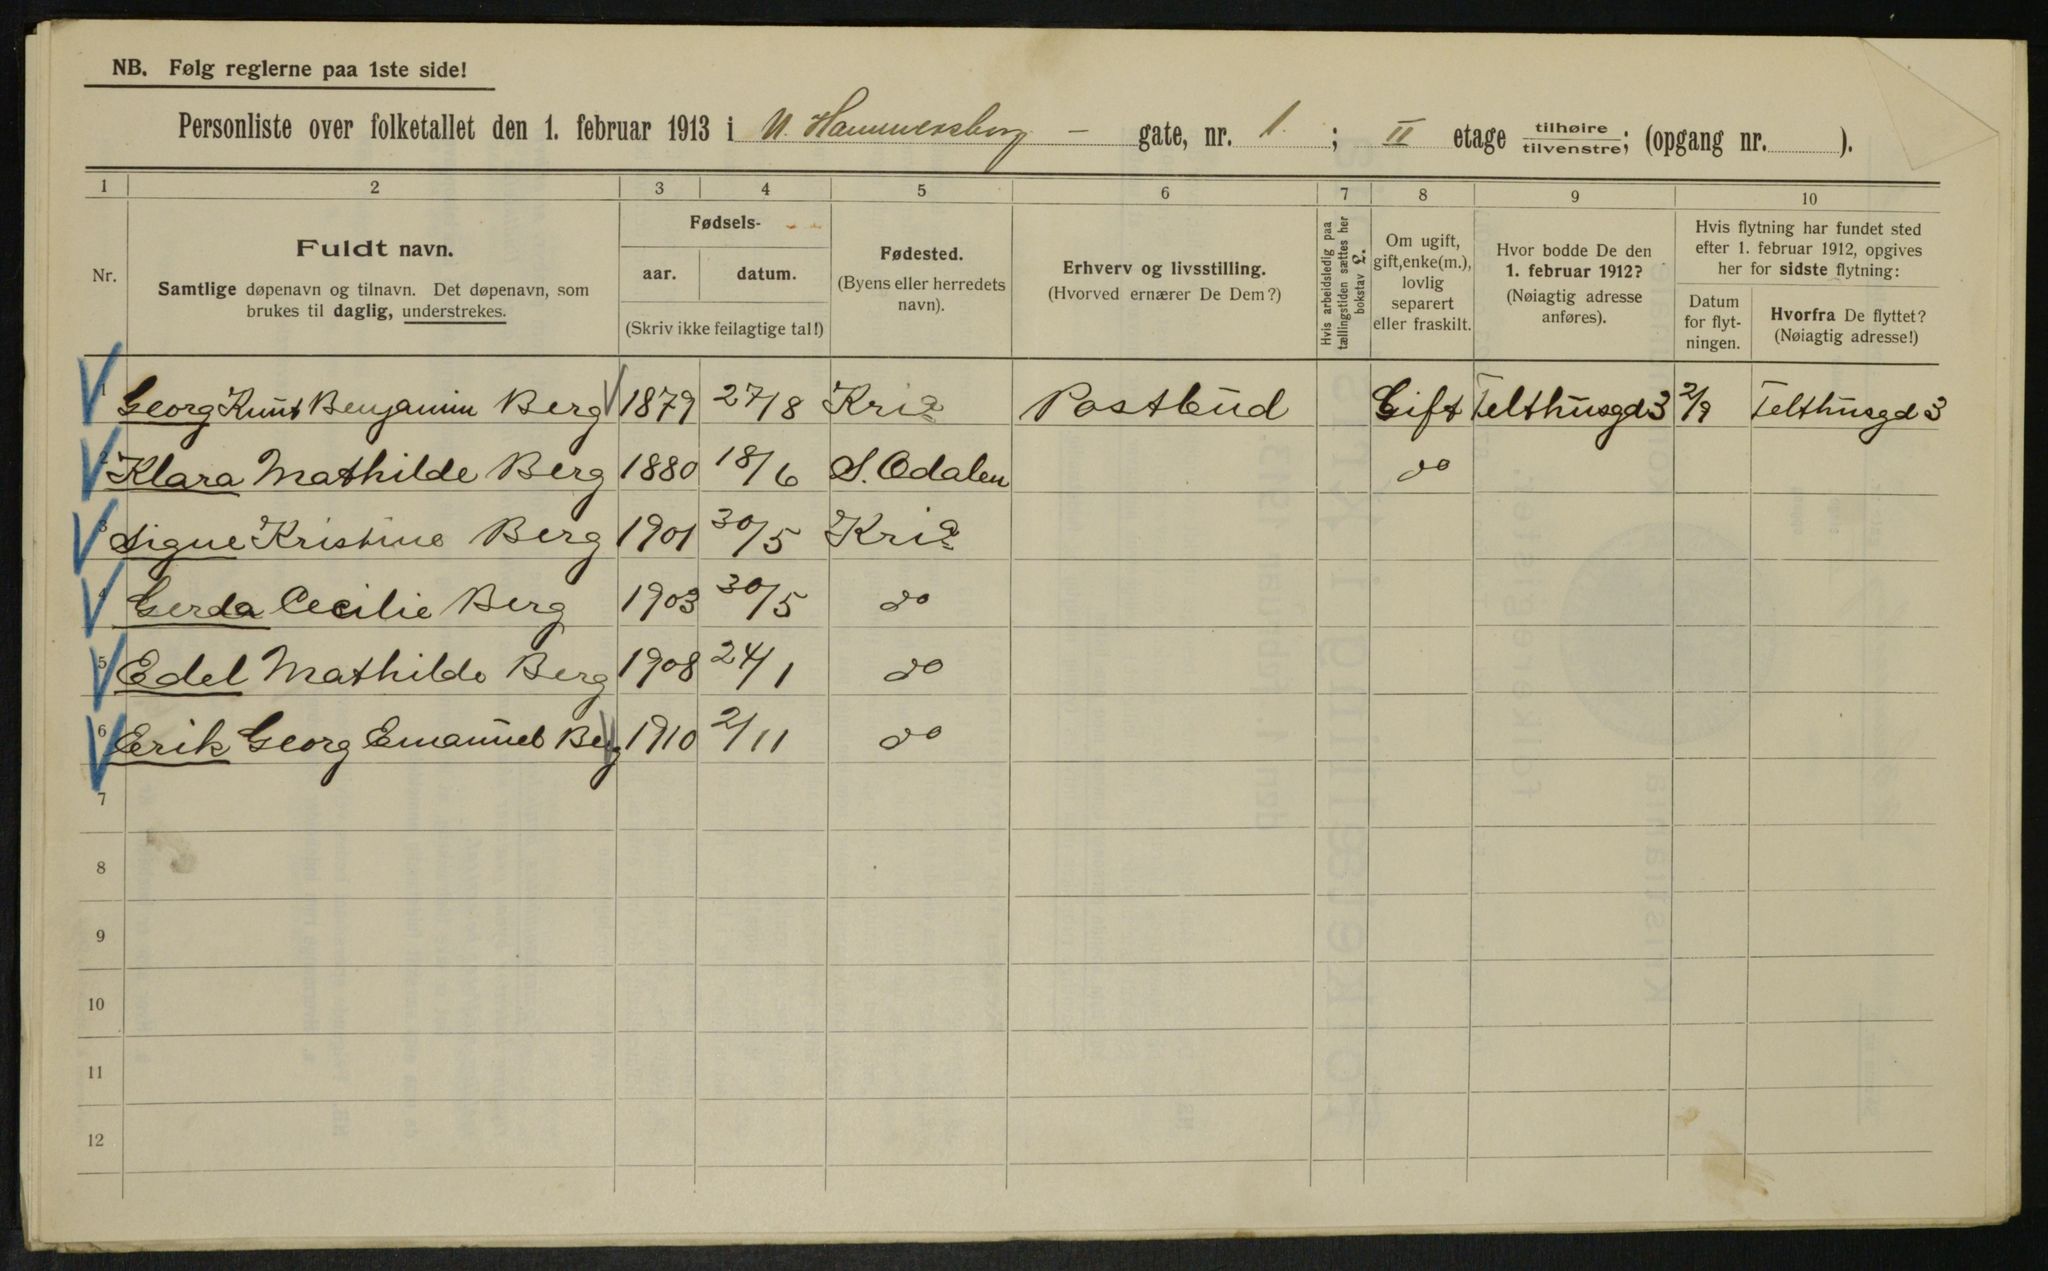 NB. Følg reglerne paa 1ste side!
Personliste over folketallet den 1. februar 1913 i N. Hammersborg - gate, nr. 1. ; II etage tilhøire tilvenstre; (opgang nr. ).
1 2 3 4 5 6 7 8 9 10
Nr.
Fuldt navn.
Samtlige døpenavn og tilnavn. Det døpenavn, som
brukes til daglig, understrekes.
Fødsels-
aar. datum.
(Skriv ikke feilagtige tal!)
Fødested.
(Byens eller herredets
navn).
Erhverv og livsstilling.
(Hvorved ernærer De Dem?)
Hvis arbeidsledig paa
tællingstiden sættes her
bokstav L.
Om ugift,
gift, enke(m.),
lovlig
separert
eller fraskilt.
Hvor bodde De den
1. februar 1912?
(Nøiagtig adresse
anføres).
Hvis flytning har fundet sted
efter 1. februar 1912, opgives
her for sidste flytning:
Datum
for flyt-
ningen.
Hvorfra De flyttet?
(Nøiagtig adresse!)
1 Georg Knut Benjamin Berg 1879 27/8 Kria Postbud Gift Telthusgd 3 2/9 Telthusgd 3
2 Klara Mathilde Berg 1880 18/6 S. Odalen do
3 Signe Kristine Berg 1901 30/5 Kria
4 Gerda Cecilie Berg 1903 30/5 do
5 Edel Mathilde Berg 1908 24/1 do
6 Erik Georg Emanuel Berg 1910 2/11 do
7
8
9
10
11
12